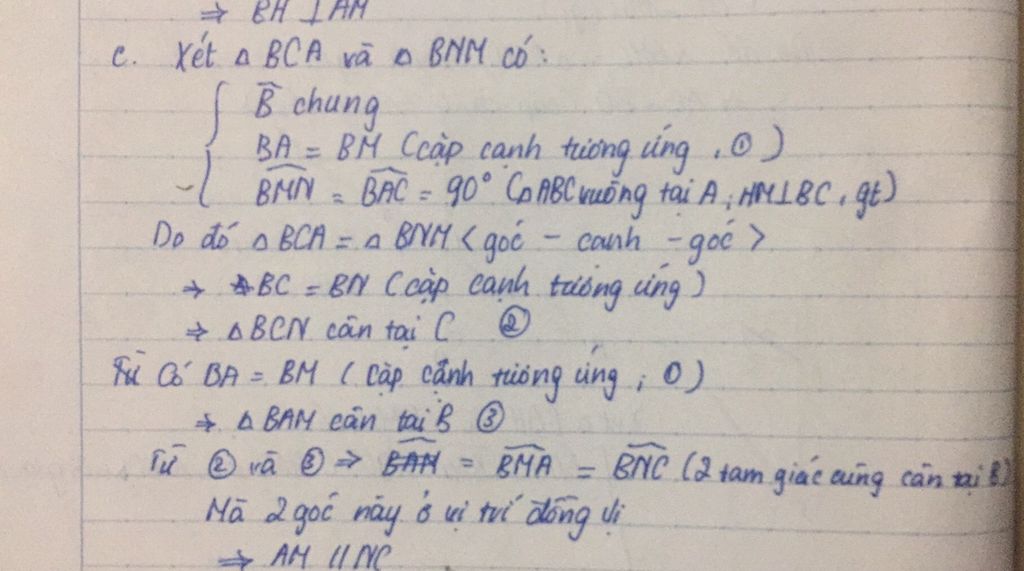 ⇒ BH ⊥ AM
c. Xét △ BCA và △ BNM có:
B̂ chung
BA = BM (cặp cạnh tương ứng, ①)
B͡MN = B͡AC = 90° (△ABC vuông tại A; HM⊥BC, gt)
Do đó △ BCA = △ BNM <góc - cạnh - góc>
⇒ BC = BN (cặp cạnh tương ứng)
⇒ △ BCN cân tại C ②
Có BA = BM (cặp cạnh tương ứng; ①)
⇒ △ BAM cân tại B ③
Từ ② và ③ ⇒ B͡AM = B͡MA = B͡NC (2 tam giác cùng cân tại B)
Mà 2 góc này ở vị trí đồng vị
⇒ AM // NC